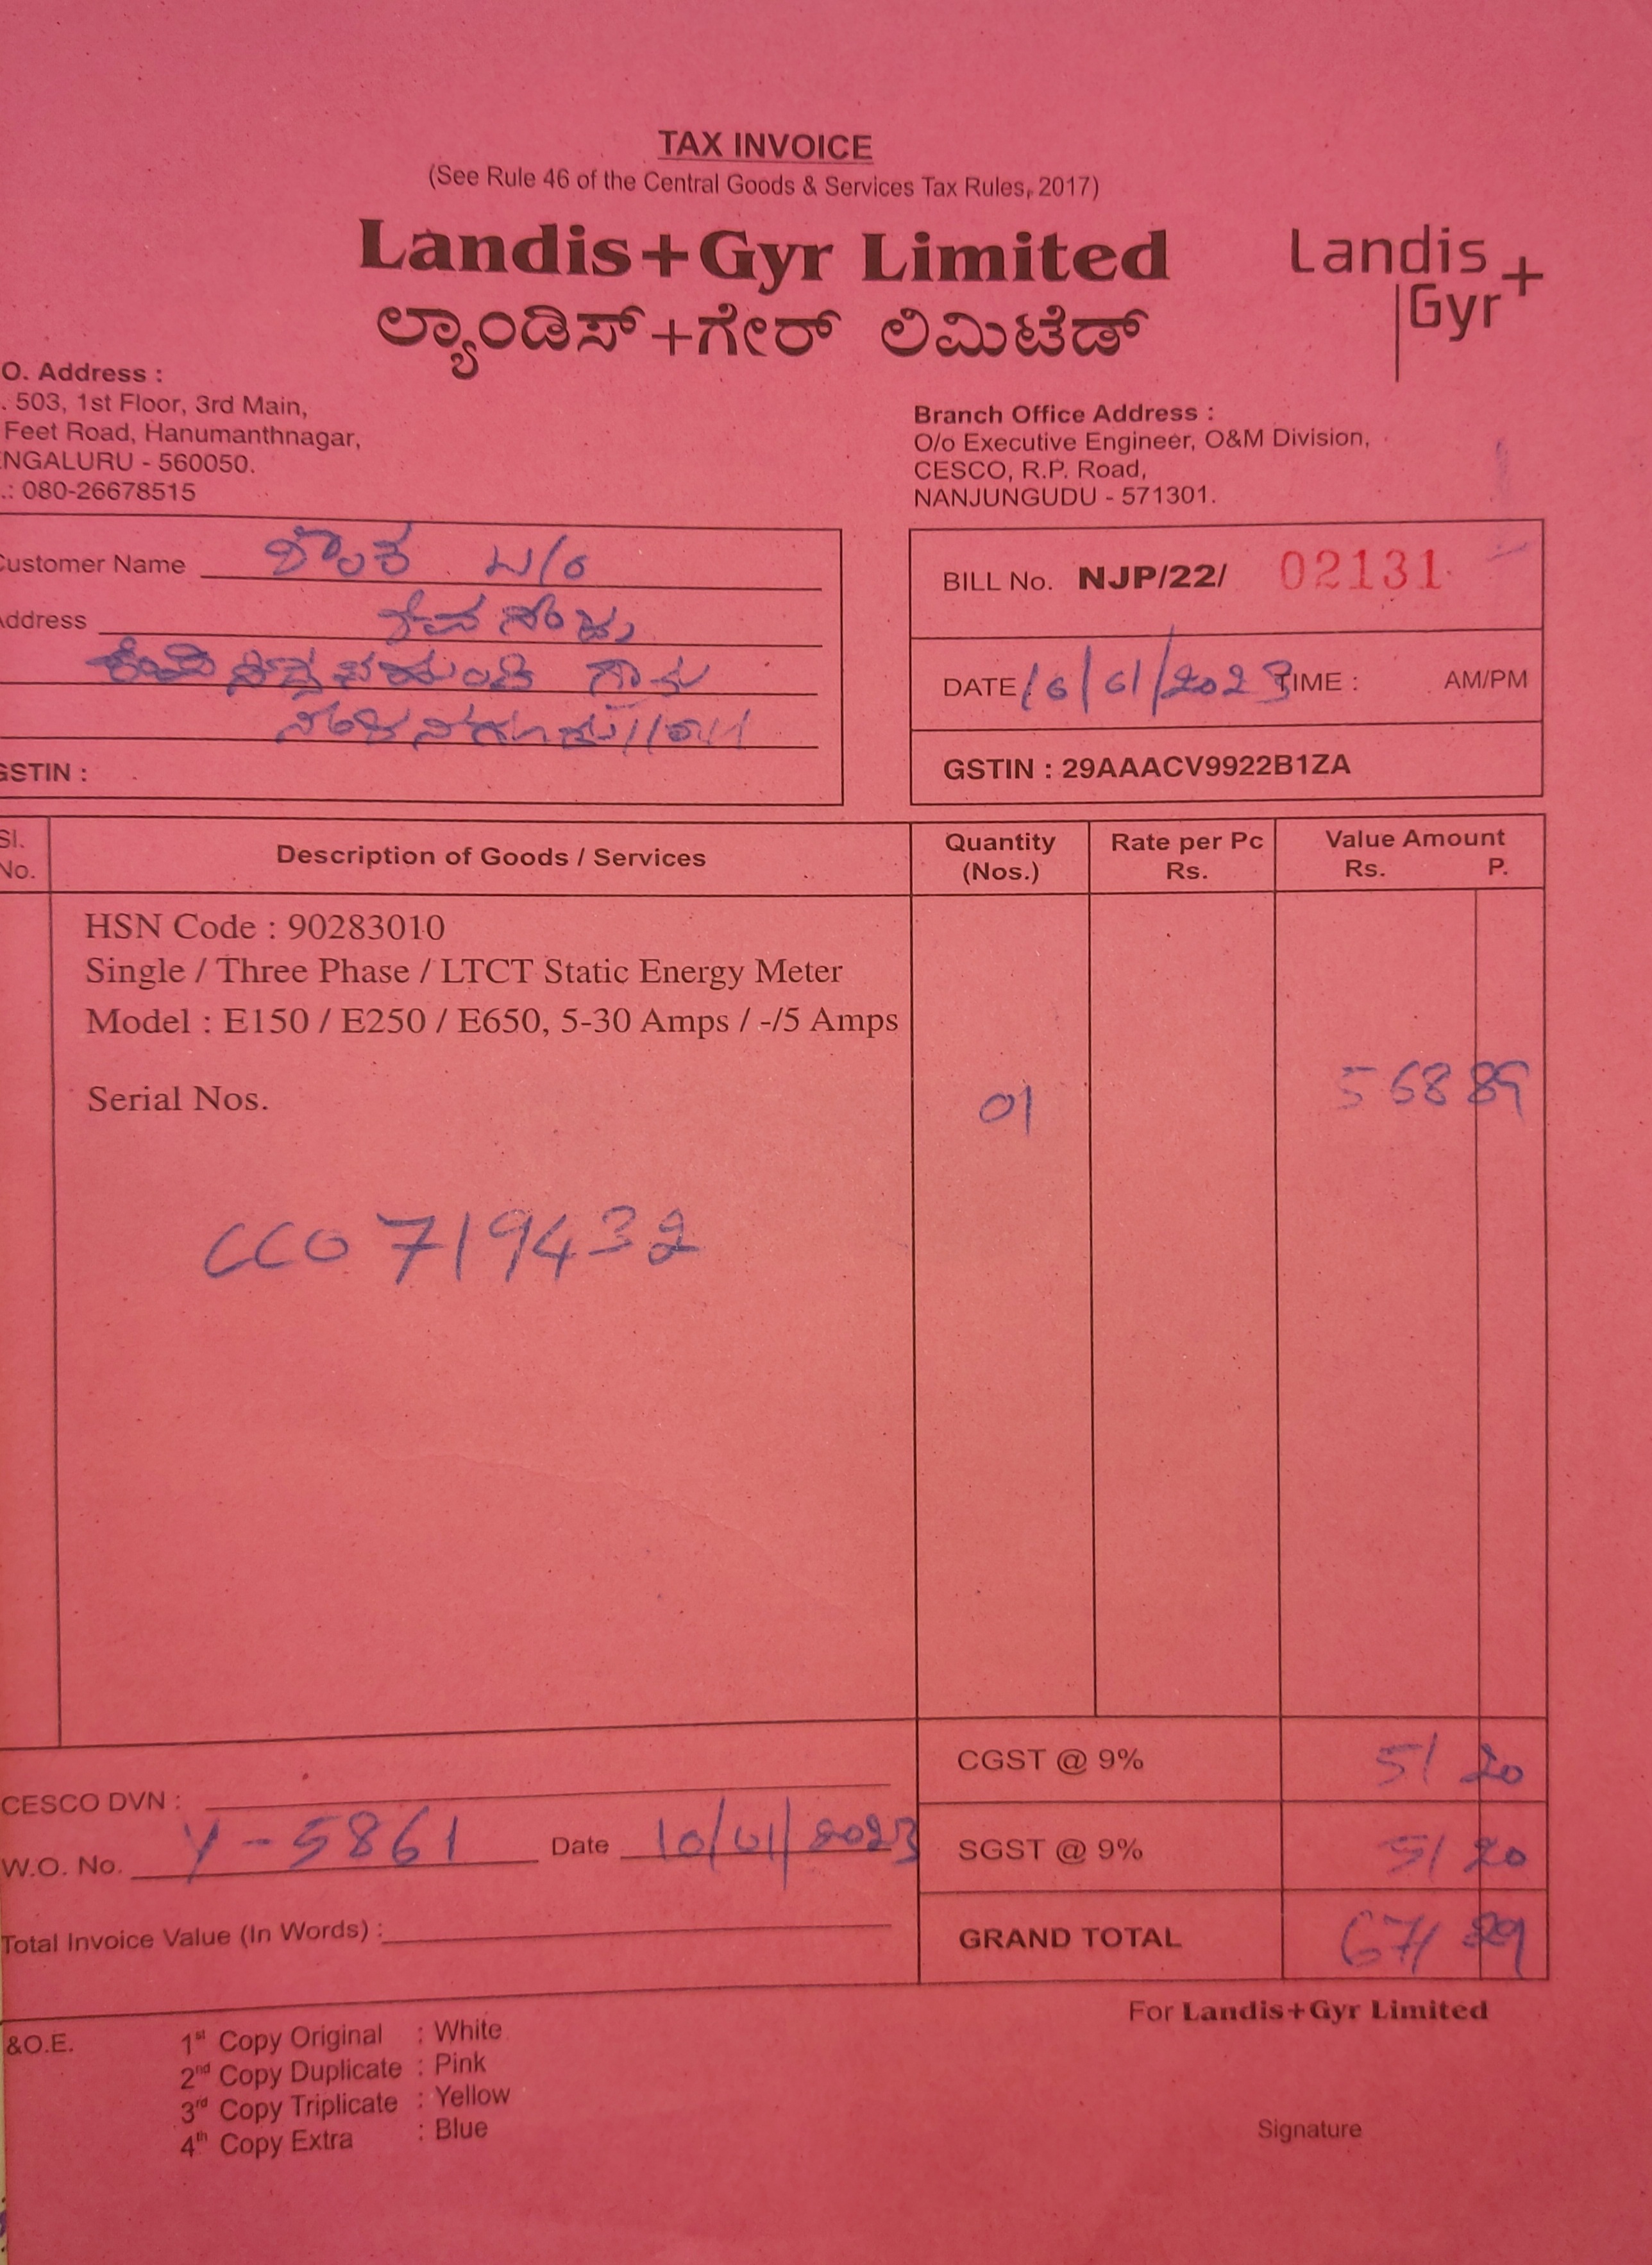 TAX INVOICE
(See Rule 46 of the Central Goods & Services Tax Rules, 2017)
Landis+Gyr Limited
ಲ್ಯಾಂಡಿಸ್+ಗೇರ್ ಲಿಮಿಟೆಡ್
Landis
Gyr+
O. Address :
. 503, 1st Floor, 3rd Main,
Feet Road, Hanumanthnagar,
ENGALURU - 560050.
.: 080-26678515
Branch Office Address :
O/o Executive Engineer, O&M Division,
CESCO, R.P. Road,
NANJUNGUDU - 571301.
Customer Name
Address
GSTIN :
BILL No. NJP/22/ 02131
DATE 16/01/2023 TIME : AM/PM
GSTIN : 29AAACV9922B1ZA
Sl. No. Description of Goods / Services Quantity (Nos.) Rate per Pc Rs. Value Amount Rs. P.
HSN Code : 90283010
Single / Three Phase / LTCT Static Energy Meter
Model : E150 / E250 / E650, 5-30 Amps / -/5 Amps
Serial Nos. 01 568 89
CC0719432
CGST @ 9% 51 20
CESCO DVN :
W.O. No. Y-5861 Date 10/01/2023
SGST @ 9% 51 20
Total Invoice Value (In Words) :
GRAND TOTAL 671 29
For Landis+Gyr Limited
&O.E.
1st Copy Original : White
2nd Copy Duplicate : Pink
3rd Copy Triplicate : Yellow
4th Copy Extra : Blue
Signature